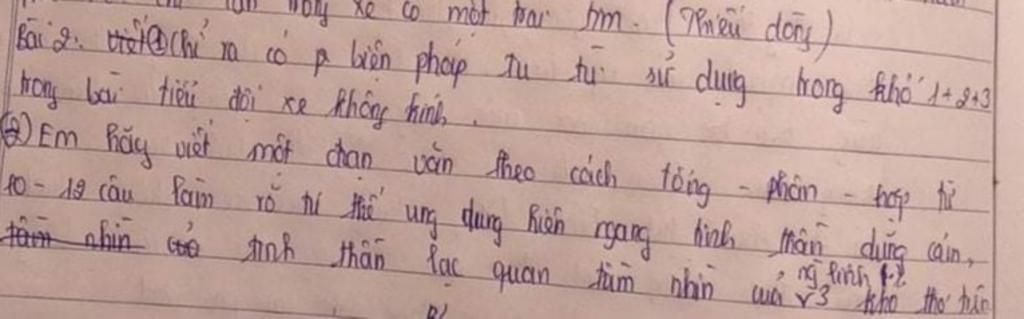 trong xe có một trái tim. (Thiếu dòng)
Bài 2: ① Chỉ ra có p biện pháp tu từ sử dụng trong khổ 1+2+3
trong bài tiểu đội xe không kính.
②) Em hãy viết một đoạn văn theo cách tổng - phân - hợp từ
10 - 12 câu làm rõ tư thế ung dung hiên ngang tinh thần dũng cảm,
tinh thần lạc quan tầm nhìn của ng lính